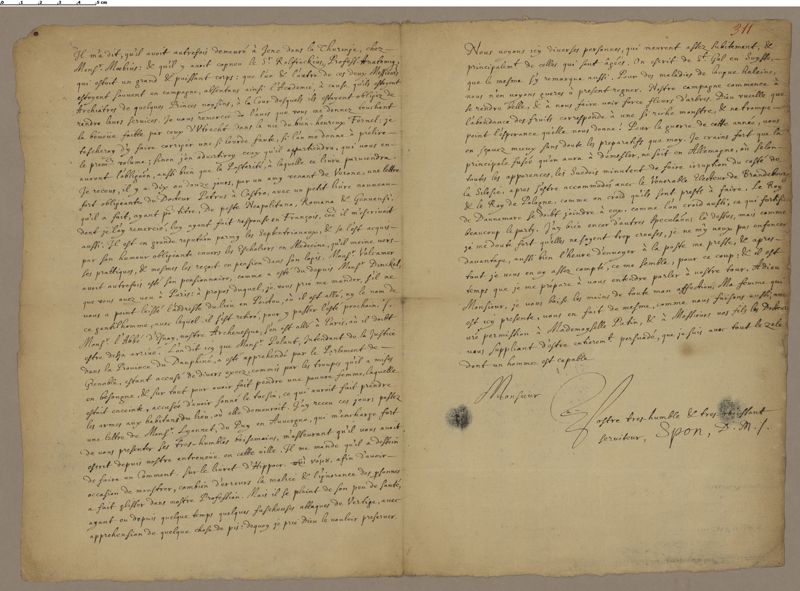 311
Il m'a dit, qu'il avoit autrefois demeuré à Jene dans la Thuringe, chez
Mons.r Mœbius: & qu'il y avoit connu le S.r Rolfinckius, Profess.r Anatomiq;
qui estoit un grand & puissant corps: que l'un & l'autre de ces deux Messieurs
estoyent souvent en campagne, absentans ainsi l'Academie, à cause qu'ils estoyent
Archiatres de quelques Princes voysins, à la Cour desquels ils estoyent obligez de
rendre leurs services. Je vous remercie de l'avis que vous me donnez touchant
la bévëue faite par ceux d'Utrecht dans la vie du bien-heureux Fernel; je
tascheray d'y faire corriger une si lourde faute, si l'on me donne à
le volume; sinon j'en advertiray ceux qu'il appartiendra, qui vous en
auront l'obligation, aussi bien que la Posterité, à laquelle ce livre parviendra.
Je receus, il y a dix ou douze jours, par un amy venant de Verone, une lettre
fort obligeante du Docteur Petrus à Castro, avec un petit livre nouveau
qu'il a fait, ayant p.r titre, De peste Neapolitana, Romana & Genuensi:
dont je l'ay remercié, luy ayant fait response en François, côe il m'escrivoit
aussi. Il est en grande reputation parmy les Septentrionaux, & se l'est acquise
par son humeur obligeante envers les Escholiers en Medecine, qu'il meine vers
ses pratiques, & mesmes les reçoit en pension dans son logis. Mons.r Volcamer
avoit autrefois esté son pensionnaire, comme a esté du depuis Mons.r Dinckel,
que vous avez veu à Paris: à propos duquel, je vous prie me mander, s'il ne
vous a point laissé l'addresse du lieu en Poictou, où il est allé, ny le nom de
ce gentilhomme, avec lequel il s'est retiré, pour y passer l'esté prochain.
Mons.r l'Abbé d'Esnay, nostre Archevesque, s'en est allé à Paris, où il doibt
estre desja arrivé. L'on dit icy que Mons.r Palant, Intendant de la Justice
dans la Province du Dauphiné, a esté apprehendé par le Parlement de
Grenoble, estant accusé de divers excez commis par les troupes qu'il a mises
en besongne, & sur tout pour avoir fait pendre une pauvre femme, laquelle
estoit enceinte, accusée d'avoir sonné le tocsin, ce qui auroit fait prendre
les armes aux habitans du lieu, où elle demeuroit. J'ay receu ces jours passez
une lettre de Mons.r Lyonnet, du Puy en Auvergne, qui m'encharge fort
de vous presenter ses tres-humbles baisemains, m'asseurant qu'il vous avoit
escrit depuis nostre entreveüe en cette ville. Il me mande qu'il a dessein
de faire un Comment. sur le livret d'Hippocr. , afin d'avoir
occasion de monstrer, combien d'erreurs la malice & l'ignorance des psonnes
a fait glisser dans nostre Profession. Mais il se plaint de son peu de santé,
ayant eu depuis quelque temps quelques fascheuses attaques de Vertige, avec
apprehension de quelque chose de pis: dequoy je prie Dieu le vouloir preserver.
Nous voyons icy diverses personnes, qui meurent assez subitement, &
principalem.t de celles qui sont âgées. On escrit de S.t Gal en Suysse,
que le mesme s'y remarque aussi. Pour des maladies de longue haleine,
nous n'en voyons gueres à present regner. Nostre campagne commence à
se rendre belle, & à nous faire voir force fleurs d'arbres. Dieu vueille que
l'abondance des fruits corresponde à une si riche monstre, & ne trompe
point l'esperance qu'elle nous donne! Pour la guerre de cette année, vous
en sçavez mieux sans doute les preparatifs que moy. Je crains fort que la
principale fusée qu'on aura à demesler, ne soit en Allemagne, où selon
toutes les apparences, les Suedois minutent de faire irruption du costé de
la Silesie, apres s'estre accommodés avec le Venerable Electeur de Brandebourg
& le Roy de Pologne, comme on croid qu'ils sont prests à faire. Le Roy
de Dannemarc se doibt joindre à eux, comme l'on croid aussi, ce qui fortifiera
beaucoup le party. J'ay bien encor d'autres speculaôns là dessus, mais comme
je me doute fort qu'elles ne soyent trop creuses, je ne m'y veux pas enfoncer
davantage, aussi bien l'heure d'envoyer à la poste me presse, & apres
tout je vous en ay assez compté, ce me semble, pour ce coup: & il est
temps que je me prepare à vous entendre parler à vostre tour. Adieu
Monsieur, je vous baise les mains de toute mon affection. Ma femme qui
est icy presente, vous en fait de mesme, comme nous faisons aussi, avec
v.re permission à Mademoiselle Patin, & à Messieurs vos fils les Docteurs
vous suppliant d'estre enherem.t persuadé, que je suis avec tout le zele
dont un homme est capable
Monsieur
Vostre tres-humble & tres-obeissant
serviteur, Spon, D. M.